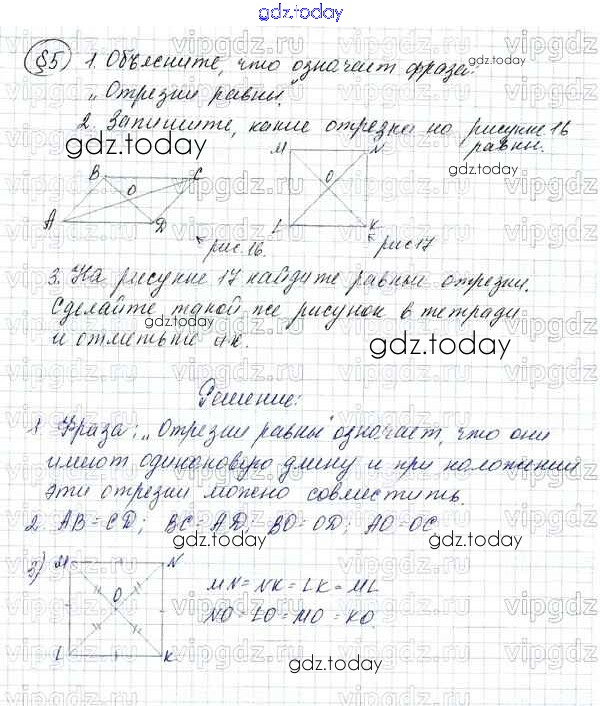 gdz.today
§5 1. Объясните, что означает фраза:
„Отрезки равны."
2. Запишите, какие отрезки на рисунке 16
равны.
gdz.today
B C M N
O O
A D L K
рис.16. рис17
3. На рисунке 17 найдите равные отрезки.
Сделайте такой же рисунок в тетради
и отметьте их.
gdz.today
Решение:
1 Фраза: „Отрезки равны" означает, что они
имеют одинаковую длину и при наложении
эти отрезки можно совместить.
2. AB=CD; BC=AD; BO=OD; AO=OC.
gdz.today
3) M N MN=NK=LK=ML
O NO=LO=MO=KO.
L K
gdz.today